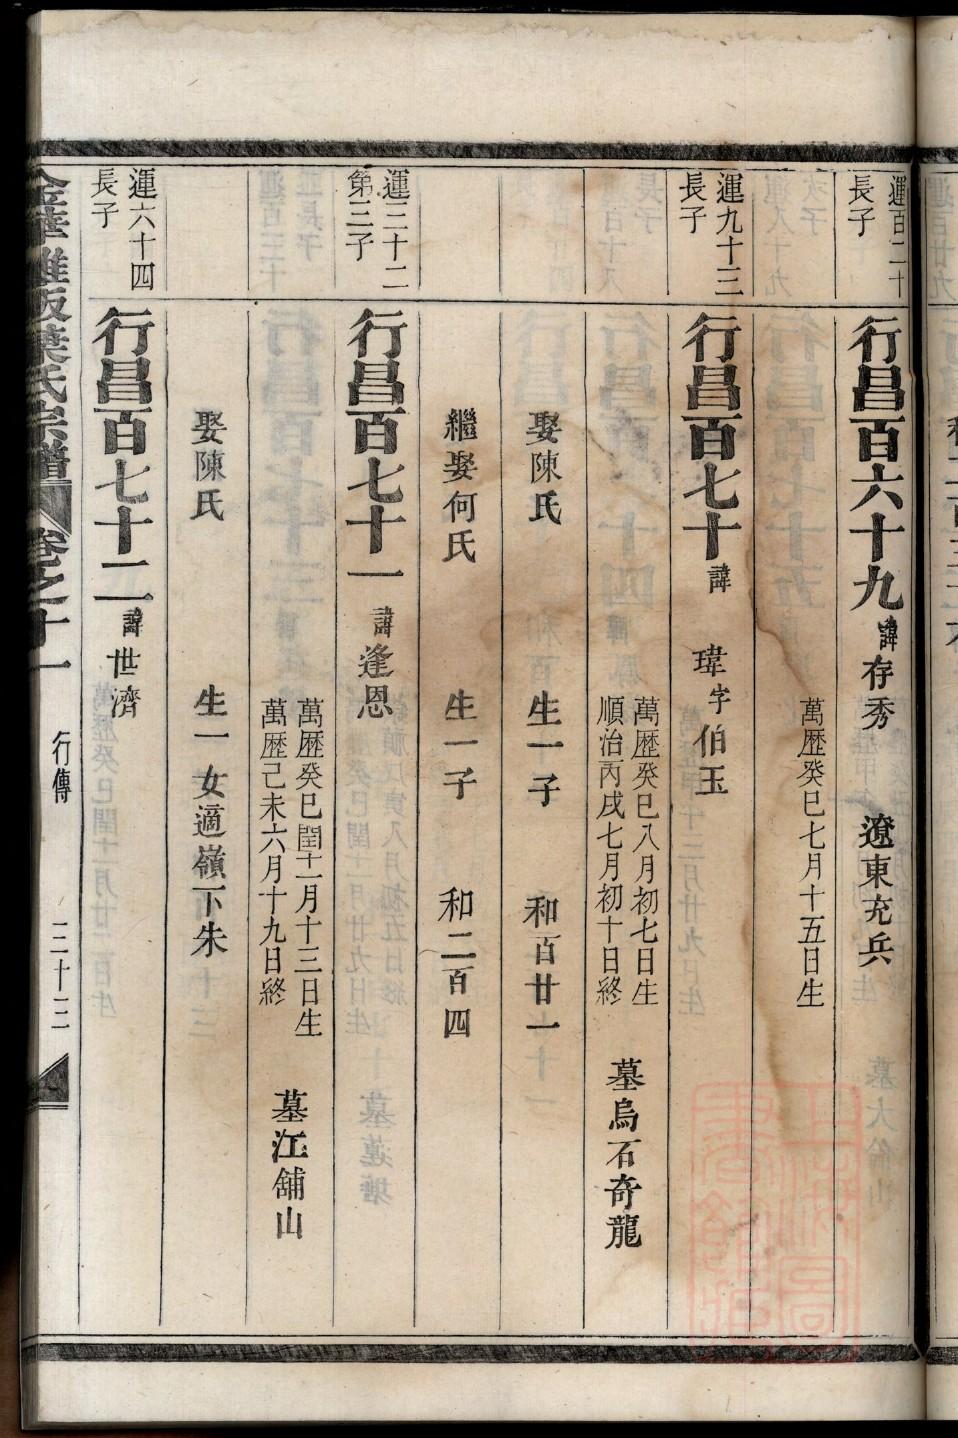 運百二十
長子
行昌百六十九 諱 存秀 遼東充兵
萬歴癸巳七月十五日生
運九十三
長子
行昌百七十 諱 瑋 字 伯玉
萬歴癸巳八月初七日生
順治丙戌七月初十日終
墓烏石奇龍
娶陳氏 生一子 和百廿一
繼娶何氏 生一子 和二百四
運三十二
第三子
行昌百七十一 諱 逢恩
萬歴癸巳閏十一月十三日生
萬歴己未六月十九日終
墓江舖山
娶陳氏 生一女適嶺下朱
運六十四
長子
行昌百七十二 諱 世濟
氏宗譜 卷之十一 行傳 三十三